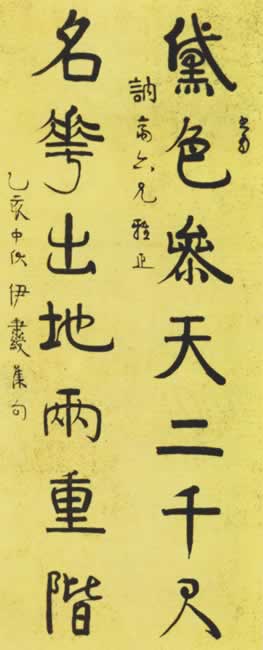 黛色參天二千尺
訥齋六兄雅正
名花出地兩重階
乙亥中秋伊集句